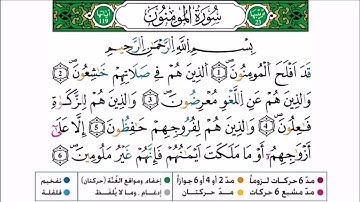 سُورَةُ المُؤْمِنُونَ
ترتيبها 23
آياتها 119
بِسْمِ اللَّهِ الرَّحْمَٰنِ الرَّحِيمِ
قَدْ أَفْلَحَ الْمُؤْمِنُونَ 1 الَّذِينَ هُمْ فِي صَلَاتِهِمْ خَٰشِعُونَ 2
وَالَّذِينَ هُمْ عَنِ اللَّغْوِ مُعْرِضُونَ 3 وَالَّذِينَ هُمْ لِلزَّكَوٰةِ
فَٰعِلُونَ 4 وَالَّذِينَ هُمْ لِفُرُوجِهِمْ حَٰفِظُونَ 5 إِلَّا عَلَىٰ
أَزْوَٰجِهِمْ أَوْ مَا مَلَكَتْ أَيْمَٰنُهُمْ فَإِنَّهُمْ غَيْرُ مَلُومِينَ 6
مدّ 6 حركات لزوماً مدّ 2 أو 4 أو 6 جوازاً إخفاء ومواقع الغُنَّة (حركتان) تفخيم
مدّ مشبع 6 حركات مدّ حركتان إدغام . وما لا يُلفظ قلقلة